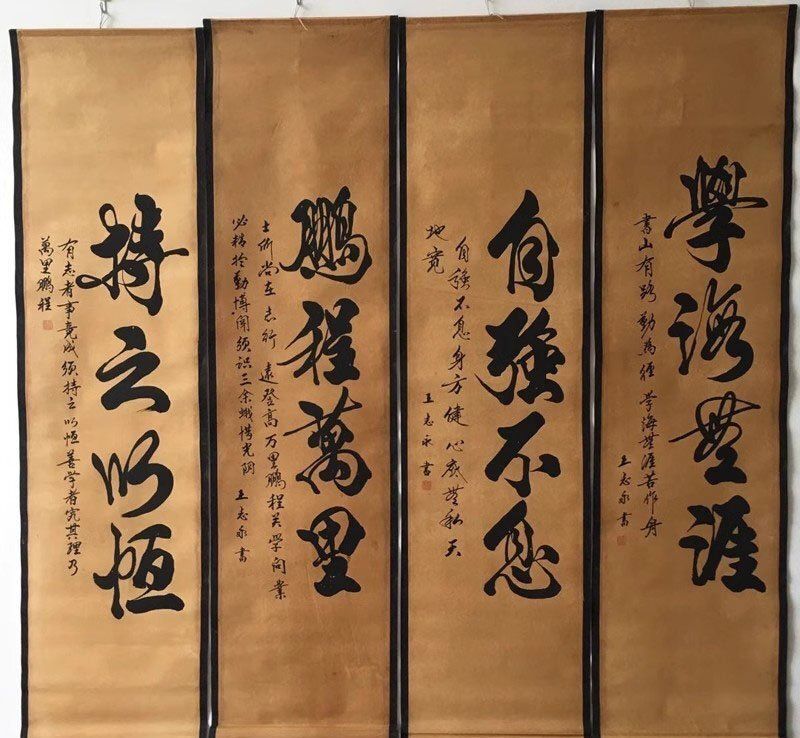 學海無涯
書山有路勤為徑 學海無涯苦作舟
王志永書
自強不息
自強不息身方健 心底無私天
地寬
王志永書
鵬程萬里
士所尚在志行 遠登高万里鵬程 学问業
必精於勤博聞須識三余惜光阴 王志永書
持之以恆
有志者事竟成須持之以恆善学者究其理乃
萬里鵬程